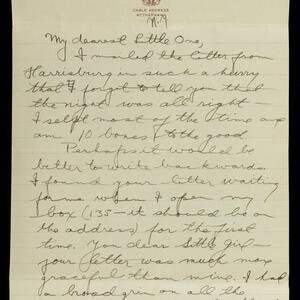 CABLE ADDRESS
N.Y.
My dearest Little One,
I mailed the letter from
Harrisburg in such a hurry
that I forgot to tell you that
the night was all right -
I slept most of the time and
am 10 bones to the good.
Perhaps it would be
better to write backwards.
I found your letter waiting
for me when I open my
box (135 - it should be on
the address) for the first
time. You dear little girl -
your letter was much more
graceful than mine. I had
a broad grin on all the